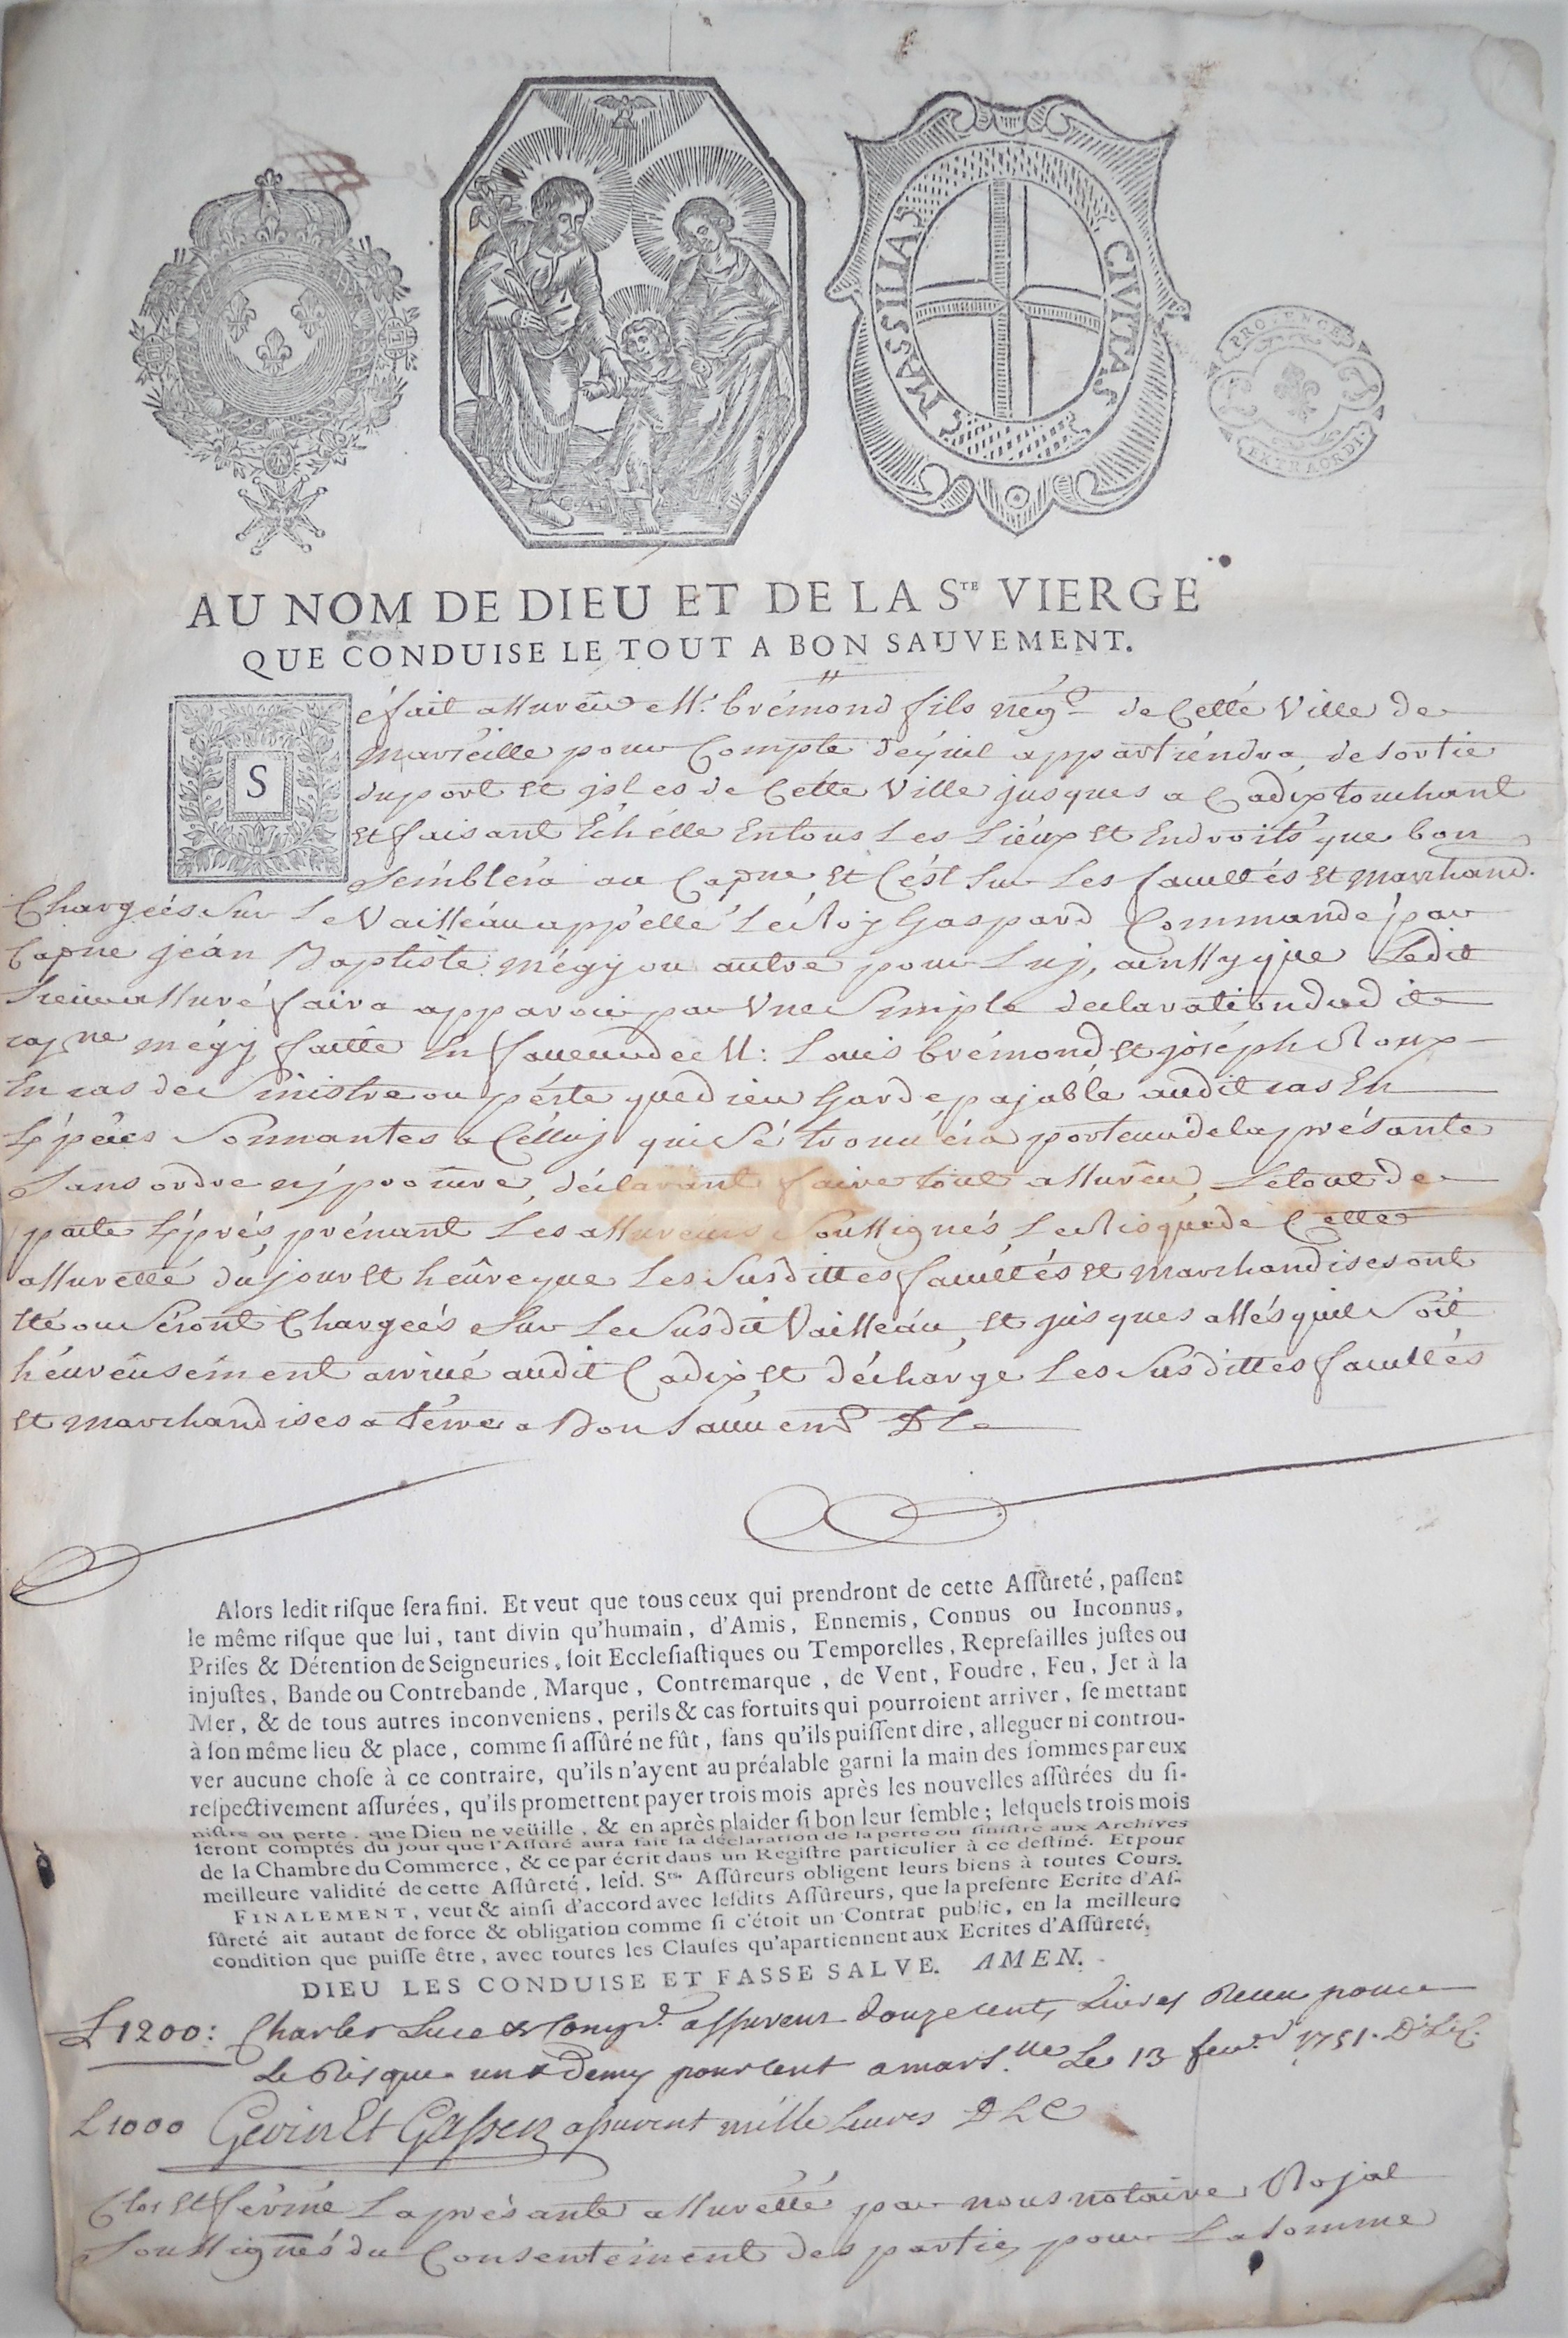 MASSILIAS CIVITAS
EXTRAORD.
AU NOM DE DIEU ET DE LA STE VIERGE
QUE CONDUISE LE TOUT A BON SAUVEMENT.
S
é fait assurèur Mr. brémond fils négt de Cette Ville de
marseille pour Compte dé quil appartiéndra, de sortie
du port et isles de Cétte Ville jusques a Cadix touchant
et faisant Echélle En tous Les Liéux et Endroits que bon
sémbléra au Capne et C'ést sur Les facultés et marchand.
Chargeés sur Le Vaisséau appéllé Lé Roy Gaspard Commandé par
Capne jéan Baptiste mégy ou autre pour Luy, ainsy que Ledit
sieur assuré faira apparoir par Une simple declaration dudit
capne mégy faitte En faveur de M: Louis brémond et joséph Roux
En cas de sinistre ou pérte que dieu Garde payable audit cas En
Espéces sonnantes a Célluy qui sé trouvéra porteur de la présante
sans ordre ny procure, déclarant faire tout assurèur, Le tout de
pacte Exprés prénant Les assureurs soussignés Le Risque de Cette
assuretté du jour et heûre que Les susdittes facultés et marchandises ont
été ou séront Chargeés sur Le susdit Vaisséau, et jusques assés quil soit
héureûsement arrivé audit Cadix et déchargé Les susdittes facultés
et marchandises a térre a Bon sauvent DLC
Alors ledit risque sera fini. Et veut que tous ceux qui prendront de cette Assûreté, passent
le même risque que lui, tant divin qu'humain, d'Amis, Ennemis, Connus ou Inconnus,
Prises & Détention de Seigneuries, soit Ecclesiastiques ou Temporelles, Represailles justes ou
injustes, Bande ou Contrebande, Marque, Contremarque, de Vent, Foudre, Feu, Jet à la
Mer, & de tous autres inconveniens, perils & cas fortuits qui pourroient arriver, se mettant
à son même lieu & place, comme si assûré ne fût, sans qu'ils puissent dire, alleguer ni controu-
ver aucune chose à ce contraire, qu'ils n'ayent au préalable garni la main des sommes par eux
respectivement assurées, qu'ils promettent payer trois mois après les nouvelles assûrées du si-
nistre ou perte, que Dieu ne veüille, & en après plaider si bon leur semble; lesquels trois mois
seront comptés du jour que l'Assuré aura fait sa déclaration de la perte ou sinistre aux Archives
de la Chambre du Commerce, & ce par écrit dans un Registre particulier à ce destiné. Et pour
meilleure validité de cette Assûreté, lesd. Srs. Assûreurs obligent leurs biens à toutes Cours.
FINALEMENT, veut & ainsi d'accord avec lesdits Assûreurs, que la presente Ecrite d'As-
sûreté ait autant de force & obligation comme si c'étoit un Contrat public, en la meilleure
condition que puisse être, avec toutes les Clauses qu'apartiennent aux Ecrites d'Assûreté.
DIEU LES CONDUISE ET FASSE SALVE. AMEN.
£ 1200: Charles Luce & Compe. assureur douze cents Livres Receu pour
Le Risque un & Demy pour cent a marslle Le 13 feur. 1751. DLC.
£ 1000 Gevin Et Gassen assurent mille Livres DLC
Clos et férmé La présante assuretté par nous notaire Royal
soussignés du Consentément des parties pour La somme